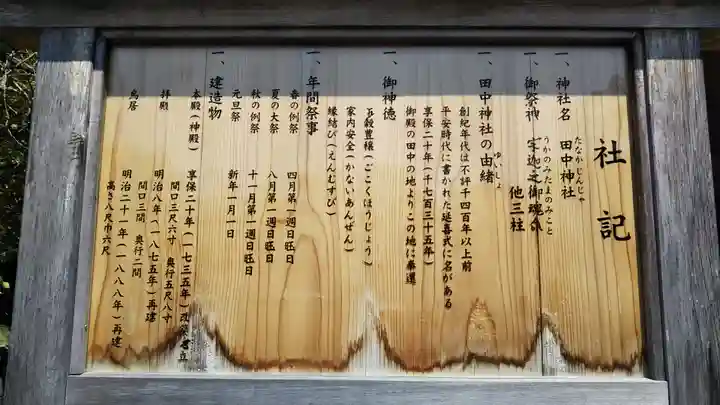 社記
一、神社名 田中神社
たなかじんじゃ
一、御祭神 宇迦之御魂命
うかのみたまのみこと
他三柱
一、田中神社の由緒
ゆいしょ
創紀年代は不詳千四百年以上前
平安時代に書かれた延喜式に名がある
享保二十年(千七百三十五年)
御殿の田中の地よりこの地に奉遷
一、御神徳
五穀豊穣(ごこくほうじょう)
家内安全(かないあんぜん)
縁結び(えんむすび)
一、年間祭事
春の例祭 四月第一週日旺日
夏の大祭 八月第一週日旺日
秋の例祭 十一月第一週日旺日
元旦祭 新年一月一日
一、建造物
本殿(神殿) 享保二十年(一七三五年)改築建立
間口三尺六寸 奥行五尺八寸
拝殿 明治八年(一八七五年)再建
間口三間 奥行二間
鳥居 明治二十一年(一八八八年)再建
高さ八尺巾六尺